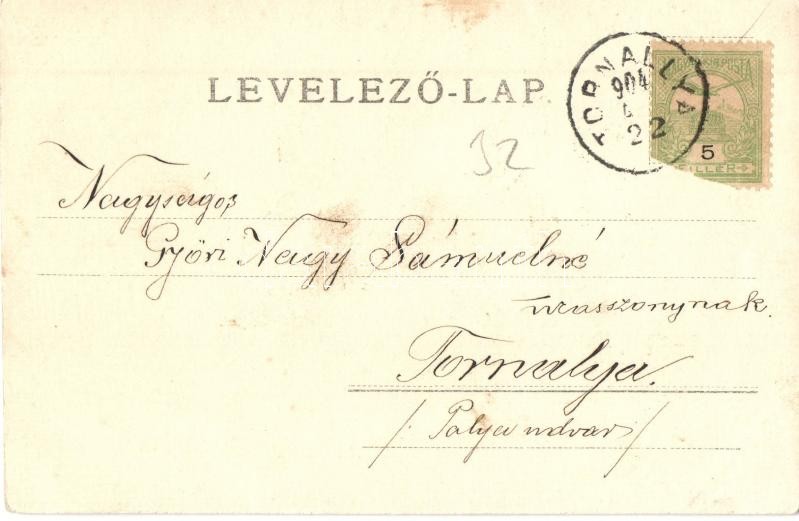 LEVELEZŐ-LAP.
TORNALLYA
904
22
MAGYAR KIR. POSTA
5
FILLÉR
32
Nagyságos
Győri Nagy Sámuelné
úrasszonynak.
Tornalya.
/: Pályaudvar /